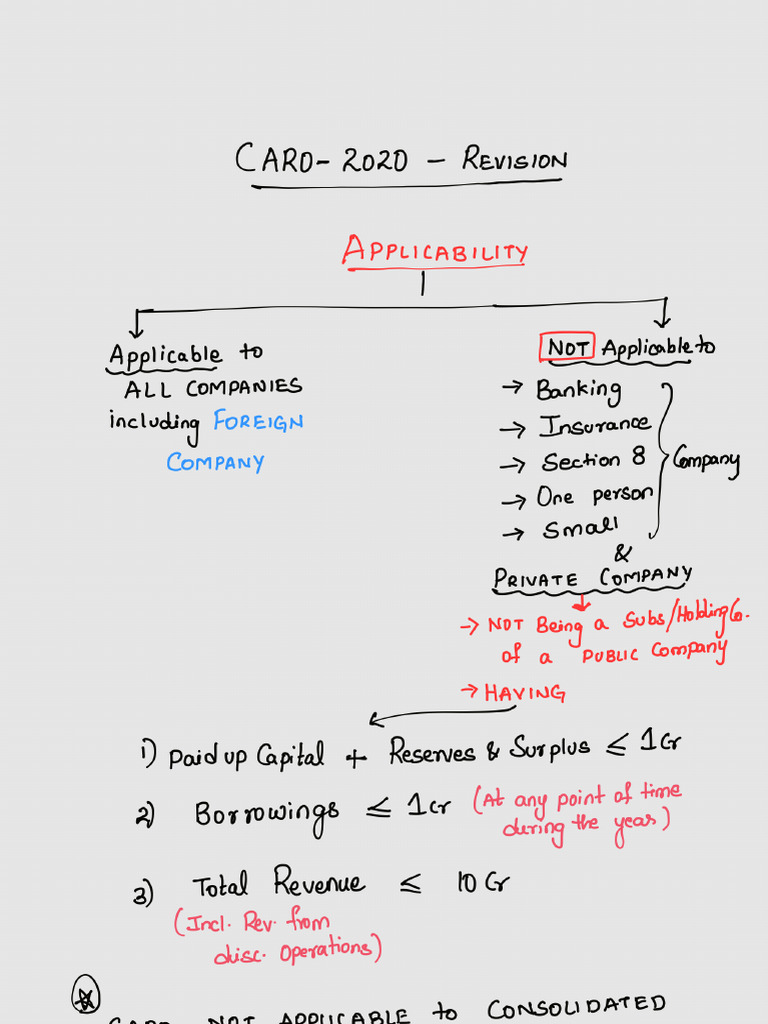 CARO-2020 - REVISION
APPLICABILITY
Applicable to
ALL COMPANIES
including FOREIGN
COMPANY
NOT Applicable to
→ Banking
→ Insurance
→ Section 8
→ One person
→ Small
Company
&
PRIVATE COMPANY
→ NOT Being a Subs/Holding Co.
of a PUBLIC Company
→ HAVING
1) Paid up Capital + Reserves & Surplus ≤ 1Cr
2) Borrowings ≤ 1Cr (At any point of time
during the year)
3) Total Revenue ≤ 10 Cr
(Incl. Rev. from
disc. Operations)
CARO NOT APPLICABLE to CONSOLIDATED